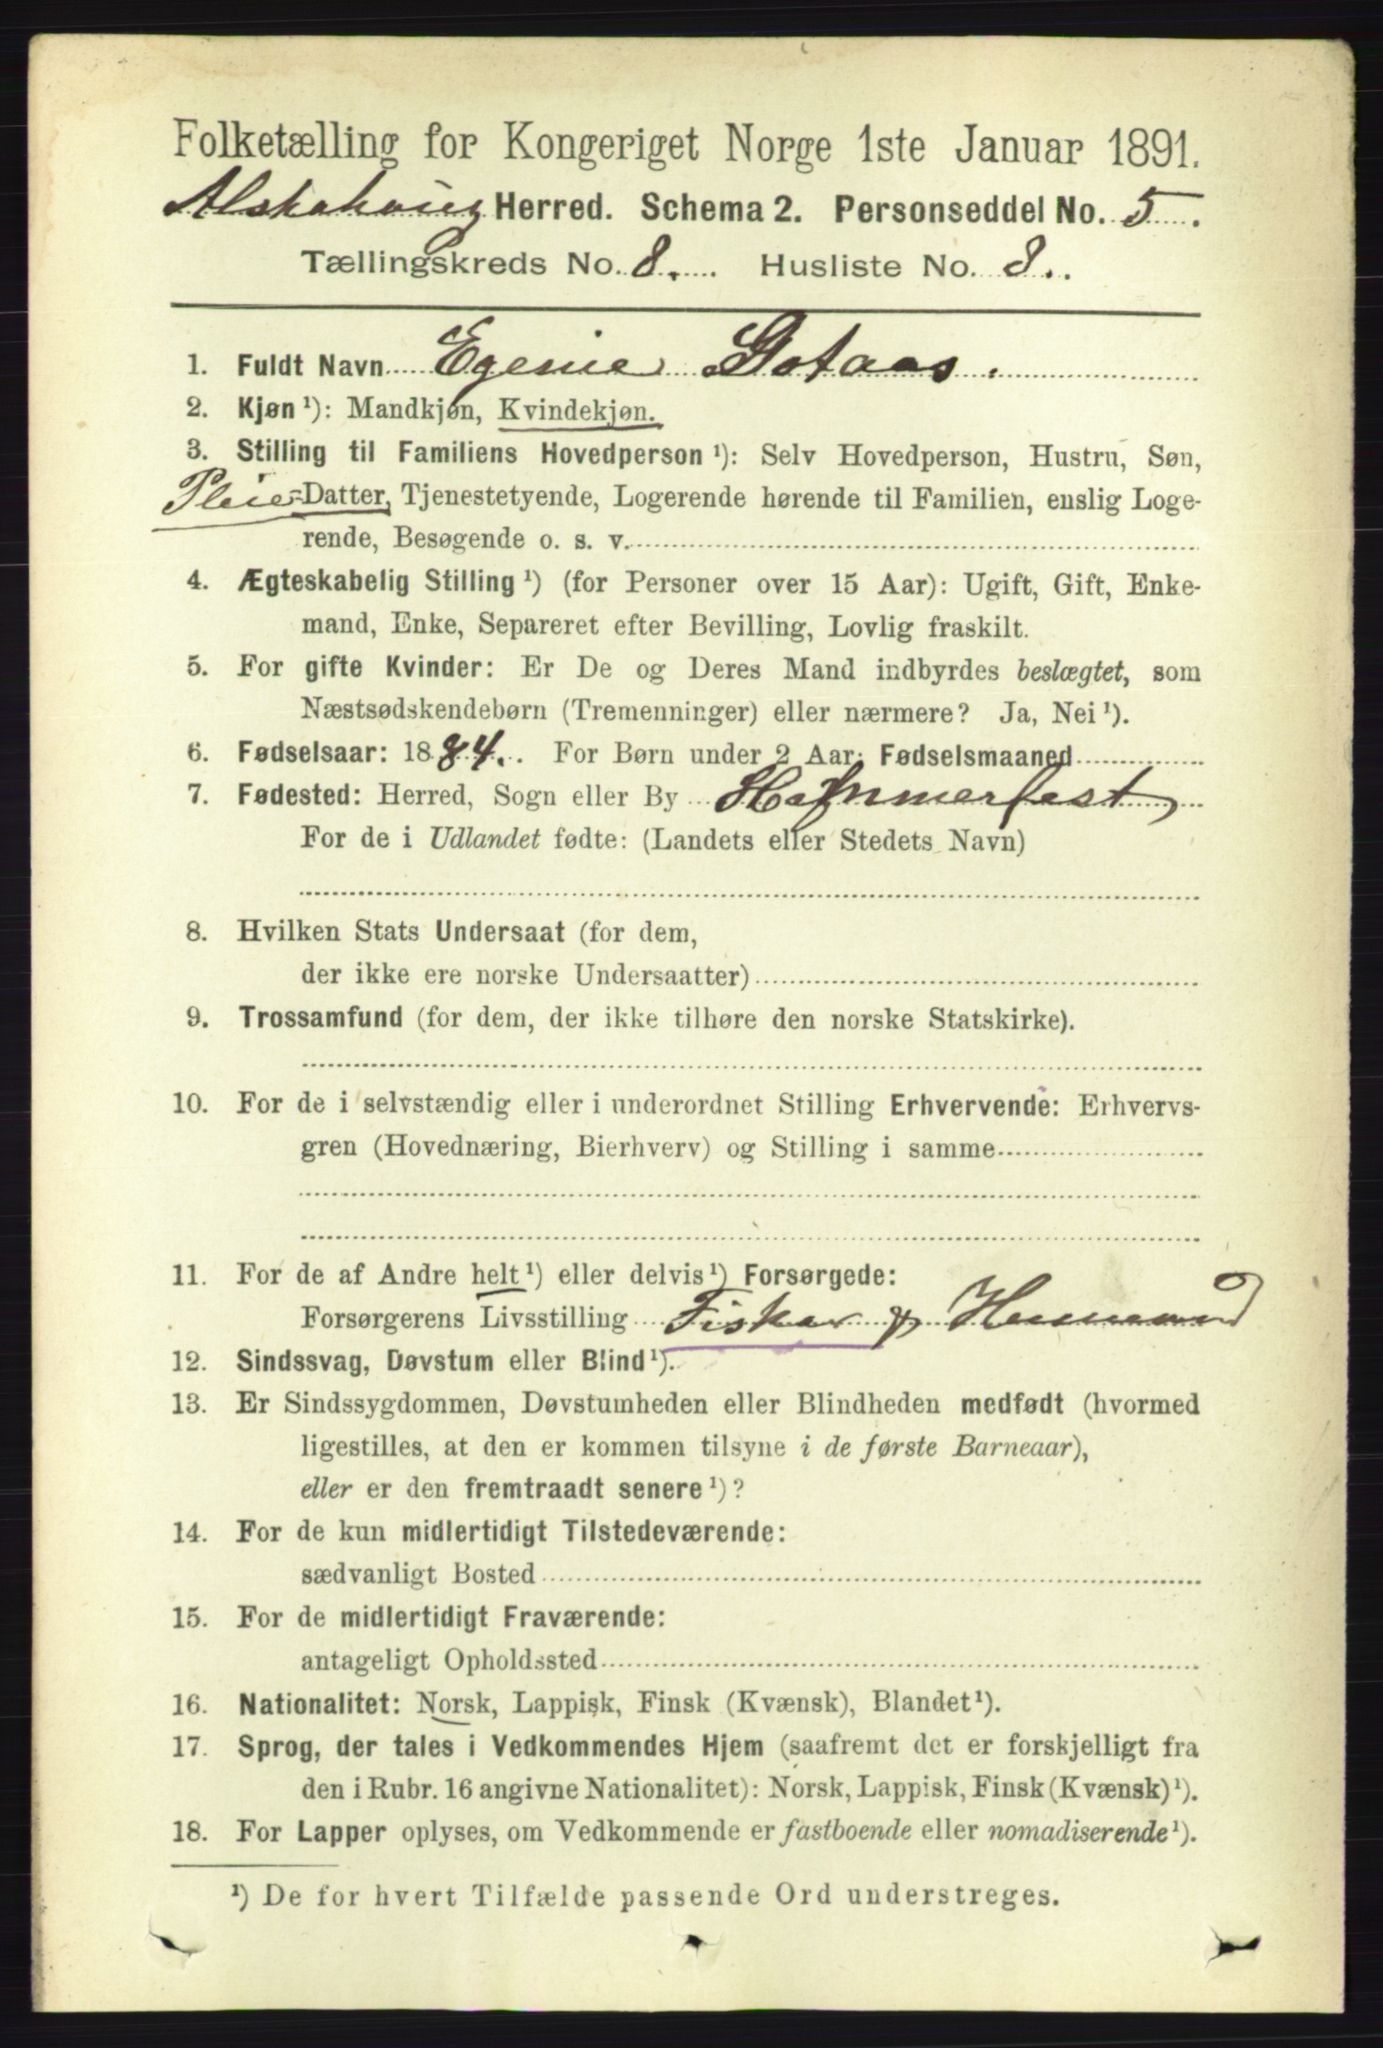 Folketælling for Kongeriget Norge 1ste Januar 1891.
Alstahoug Herred. Schema 2. Personseddel No. 5.
Tællingskreds No. 8. Husliste No. 8.
1. Fuldt Navn Egenie Gotaas.
2. Kjøn ¹): Mandkjøn, Kvindekjøn.
3. Stilling til Familiens Hovedperson ¹): Selv Hovedperson, Hustru, Søn,
Pleie- Datter, Tjenestetyende, Logerende hørende til Familien, enslig Loge-
rende, Besøgende o. s. v.
4. Ægteskabelig Stilling ¹) (for Personer over 15 Aar): Ugift, Gift, Enke-
mand, Enke, Separeret efter Bevilling, Lovlig fraskilt.
5. For gifte Kvinder: Er De og Deres Mand indbyrdes beslægtet, som
Næstsødskendebørn (Tremenninger) eller nærmere? Ja, Nei ¹).
6. Fødselsaar: 1884. For Børn under 2 Aar: Fødselsmaaned
7. Fødested: Herred, Sogn eller By Hammerfest
For de i Udlandet fødte: (Landets eller Stedets Navn)
8. Hvilken Stats Undersaat (for dem,
der ikke ere norske Undersaatter)
9. Trossamfund (for dem, der ikke tilhøre den norske Statskirke).
10. For de i selvstændig eller i underordnet Stilling Erhvervende: Erhvervs-
gren (Hovednæring, Bierhverv) og Stilling i samme
11. For de af Andre helt ¹) eller delvis ¹) Forsørgede:
Forsørgerens Livsstilling Fisker
12. Sindssvag, Døvstum eller Blind ¹).
13. Er Sindssygdommen, Døvstumheden eller Blindheden medfødt (hvormed
ligestilles, at den er kommen tilsyne i de første Barneaar),
eller er den fremtraadt senere ¹)?
14. For de kun midlertidigt Tilstedeværende:
sædvanligt Bosted
15. For de midlertidigt Fraværende:
antageligt Opholdssted
16. Nationalitet: Norsk, Lappisk, Finsk (Kvænsk), Blandet ¹).
17. Sprog, der tales i Vedkommendes Hjem (saafremt det er forskjelligt fra
den i Rubr. 16 angivne Nationalitet): Norsk, Lappisk, Finsk (Kvænsk) ¹).
18. For Lapper oplyses, om Vedkommende er fastboende eller nomadiserende ¹).
¹) De for hvert Tilfælde passende Ord understreges.